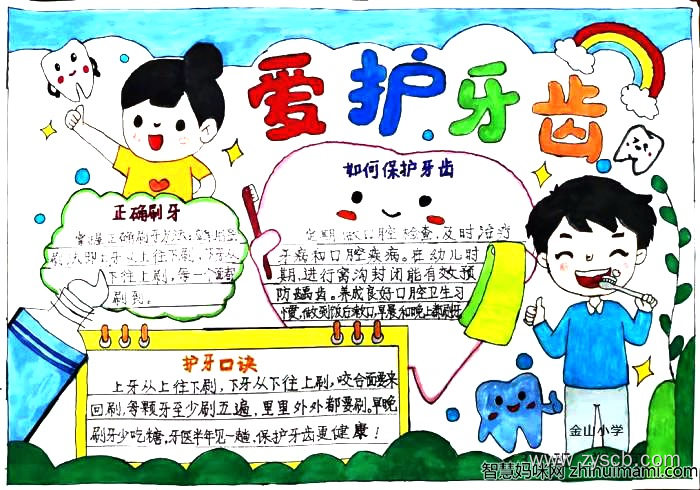 爱护牙齿
如何保护牙齿
定期做口腔检查,及时治疗
牙病和口腔疾病。在幼儿时
期,进行窝沟封闭能有效预
防龋齿。养成良好口腔卫生习
惯,做到饭后漱口,早晨和晚上都刷牙
正确刷牙
掌握正确刷牙方法:
刷,上牙从上往下刷,下牙从
下往上刷,每一个
刷到。
护牙口诀
上牙从上往下刷,下牙从下往上刷,咬合面要来
回刷,每颗牙至少刷五遍,里里外外都要刷。早晚
刷牙少吃糖,牙医半年见一趟,保护牙齿更健康!
金山小学
www.zyscb.com
智慧妈咪网 zhihuimami.com